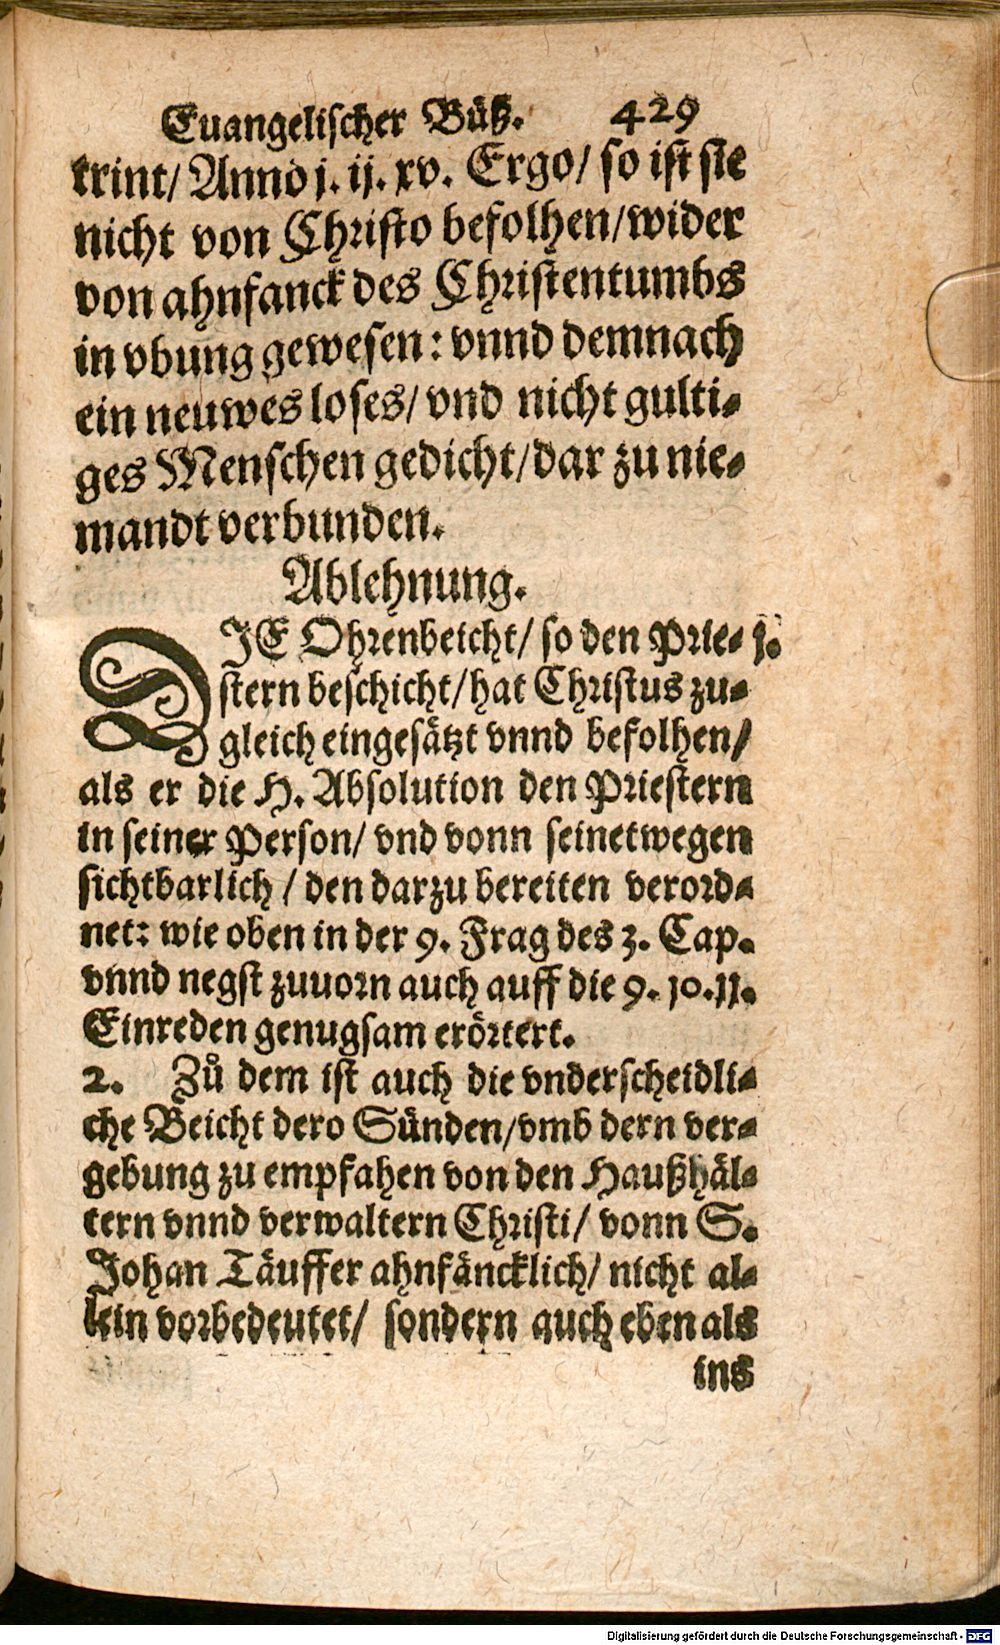 Euangelischer Büß. 429
krint/ Anno j. ij. xv. Ergo/ so ist sie
nicht von Christo befolhen/wider
von ahnfanck des Christentumbs
in vbung gewesen: vnnd demnach
ein neuwes loses/ vnd nicht gulti⸗
ges Menschen gedicht/dar zu nie⸗
mandt verbunden.
Ablehnung.
DJE Ohrenbeicht/ so den Prie⸗ j.
stern beschicht/hat Christus zu⸗
gleich eingesätzt vnnd befolhen/
als er die H. Absolution den Priestern
in seiner Person/ vnd vonn seinetwegen
sichtbarlich / den darzu bereiten verord⸗
net: wie oben in der 9. Frag des 3. Cap.
vnnd negst zuuorn auch auff die 9. 10. 11.
Einreden genugsam erörtert.
2. Zů dem ist auch die vnderscheidli⸗
che Beicht dero Sünden/vmb dern ver⸗
gebung zu empfahen von den Haußhäl⸗
tern vnnd verwaltern Christi/ vonn S.
Johan Täuffer ahnfäncklich/ nicht al⸗
lein vorbedeutet/ sondern auch eben als
ins
Digitalisierung gefördert durch die Deutsche Forschungsgemeinschaft - DFG